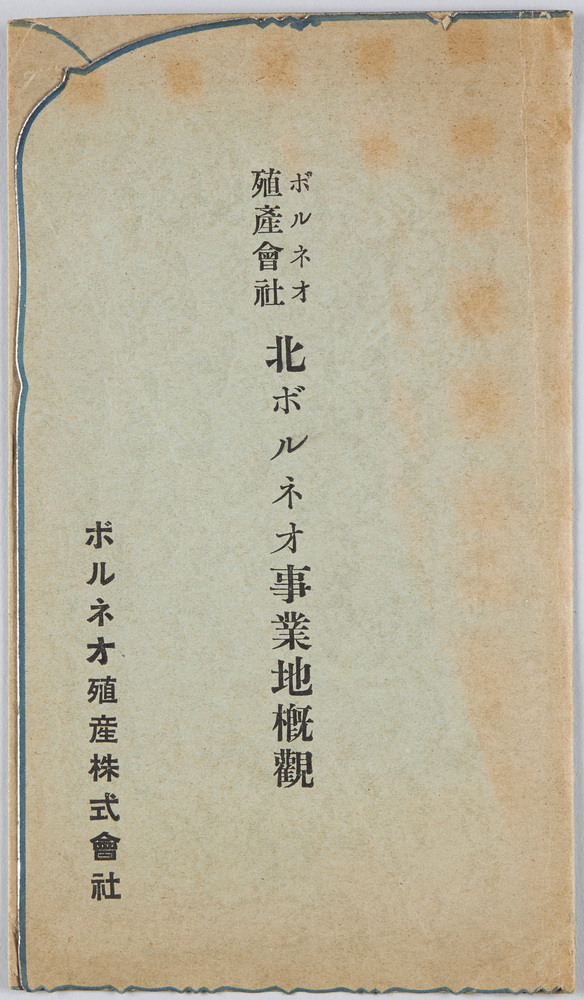 ボルネオ
殖產會社
北ボルネオ事業地槪觀
ボルネオ殖産株式會社